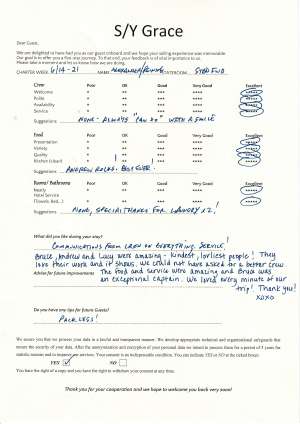 S/Y Grace
Dear Guest,
We are delighted to have had you as our guest onboard and we hope your sailing experience was memorable.
Our Goal is to offer you a five star journey. To that end, your feedback is of vital importance to us.
Please take a moment and let us know how we are doing.
CHARTER WEEK: 6/14-21 NAME: STATEROOM: STBD FWD
Crew Poor OK Good Very Good Excellent
Welcome * ** *** **** *****
Polite * ** *** **** *****
Availability * ** *** **** *****
Service * ** *** **** *****
Suggestions: NONE - ALWAYS WITH A SMILE
Food Poor OK Good Very Good Excellent
Presentation * ** *** **** *****
Variety * ** *** **** *****
Quality * ** *** **** *****
Kitchen (clean) * ** *** **** *****
Suggestions: ANDREW ROCKS! BEST EVER!
Rooms/ Bathrooms Poor OK Good Very Good Excellent
Neatly * ** *** **** *****
Hotel Service * ** *** **** *****
(Towels, Bed...) * ** *** **** *****
Suggestions: NONE, SPECIAL THANKS FOR LAUNDRY X2!
What did you like during your stay?
COMMUNICATIONS FROM CREW ON EVERYTHING. SERVICE!
Bruce, Andrew and Lucy were amazing - kindest, lovliest people! They
love their work and it shows. We could not have asked for a better crew
Advice for future improvements The food and service were amazing and Bruce was
an exceptional captain. We loved every minute of our
trip! Thank you!
XOXO
Do you have any tips for future Guests?
PACK LESS!
We assure you that we process your data in a lawful and transparent manner. We develop appropriate technical and organizational safeguards that
ensure the security of your data. After the anonymization and encryption of your personal data we intend to process them for a period of 5 years for
statistic reasons and to improve our services. Your consent is an indispensable condition. You can indicate YES or NO at the ticked boxes:
YES NO
You have the right of a copy and you have the right to withdraw your consent at any time.
Thank you for your cooperation and we hope to welcome you back very soon!